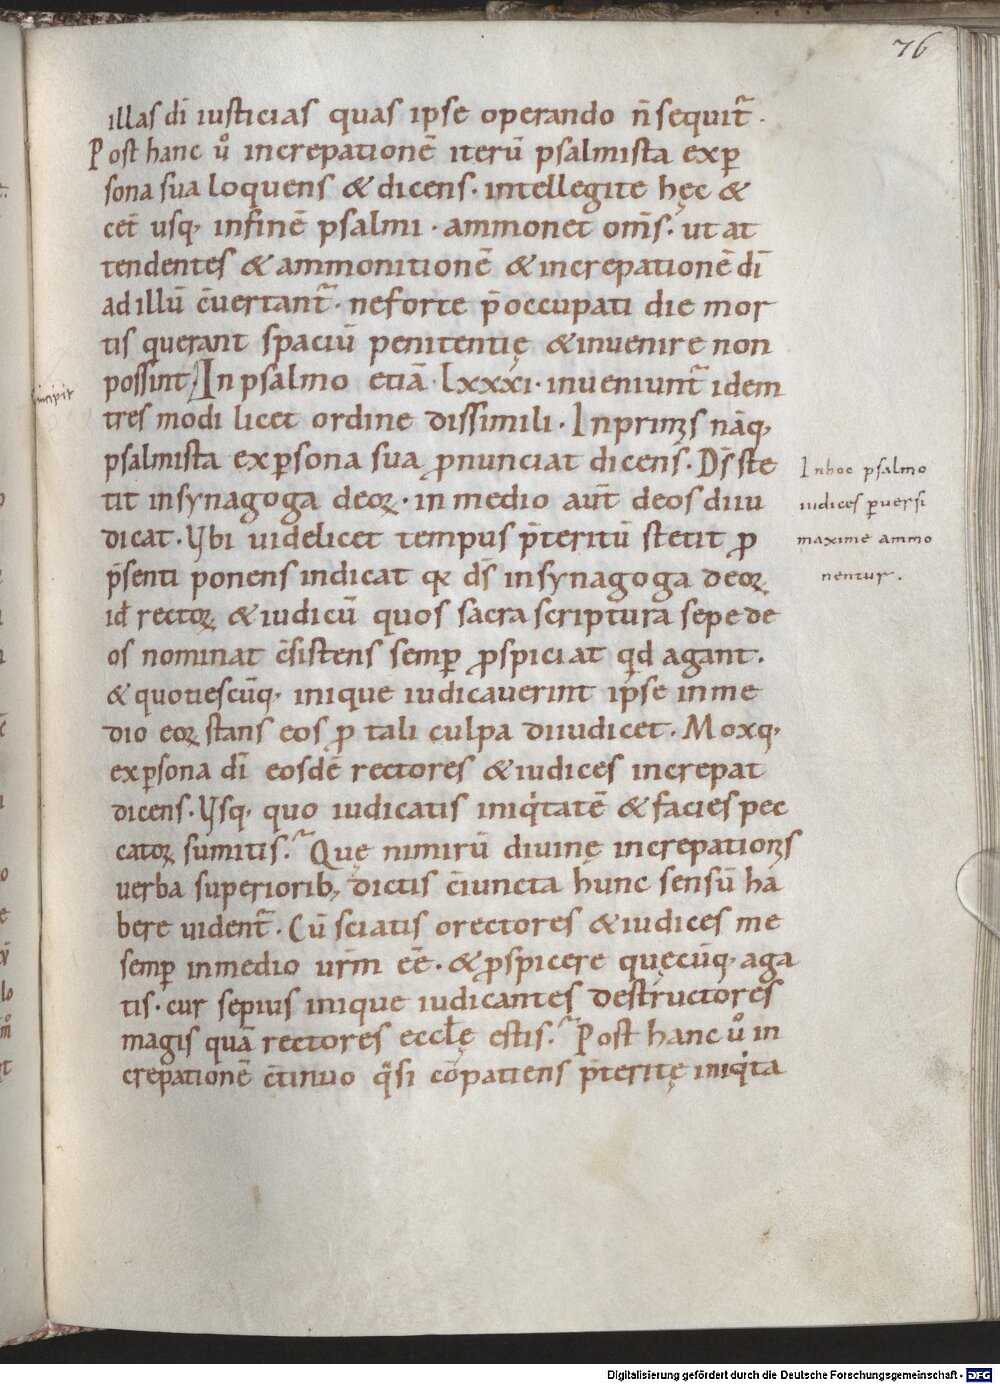 76
illas dī iusticias quas ipse operando n̄ sequit᷑.
Post hanc ů increpationē iterū psalmista ex ꝑ
sona sua loquens & dicens. intellegite hęc &
cet̄ usq; in finē psalmi. ammonet om̄s. ut at
tendentes & ammonitionē & increpationē dī
ad illū c̄uertant᷑. ne forte p̄occupati die mor
tis querant spaciū penitentię & inuenire non
possint/ In psalmo etiā. lxxxi. inueniunt᷑ idem
tres modi licet ordine dissimili. In primis nāq;
psalmista ex ꝑsona sua ꝓnunciat dicens. D̄s ste
tit in synagoga deoꝝ. in medio aūt deos diiu
dicat. Vbi uidelicet tempus p̄teritū stetit ꝓ
p̄senti ponens indicat qꝫ d̄s in synagoga deoꝝ
id̄ rectoꝝ & iudicū quos sacra scriptura sepe de
os nominat c̄sistens semꝑ ꝓspiciat qd̄ agant.
& quotiescūq; inique iudicauerint ipse in me
dio eoꝝ stans eos ꝓ tali culpa diiudicet. Moxq;
ex ꝑsona dī eosdē rectores & iudices increpat
dicens. Vsq; quo iudicatis iniqͥtatē & facies pec
catoꝝ sumitis? Quę nimirū diuinę increpationis
uerba superiorib; dictis c̄iuncta hunc sensū ha
bere uident᷑. Cū sciatis o rectores & iudices me
semꝑ in medio ur̄m ēē. & ꝓspicere quęcūq; aga
tis. cur sepius inique iudicantes destructores
magis quā rectores eccłę estis? Post hanc ů in
crepationē c̄tinuo qͣsi cōpatiens p̄teritę iniqͥta
In hoc psalmo
iudices ꝑuersi
maxime ammo
nentur.